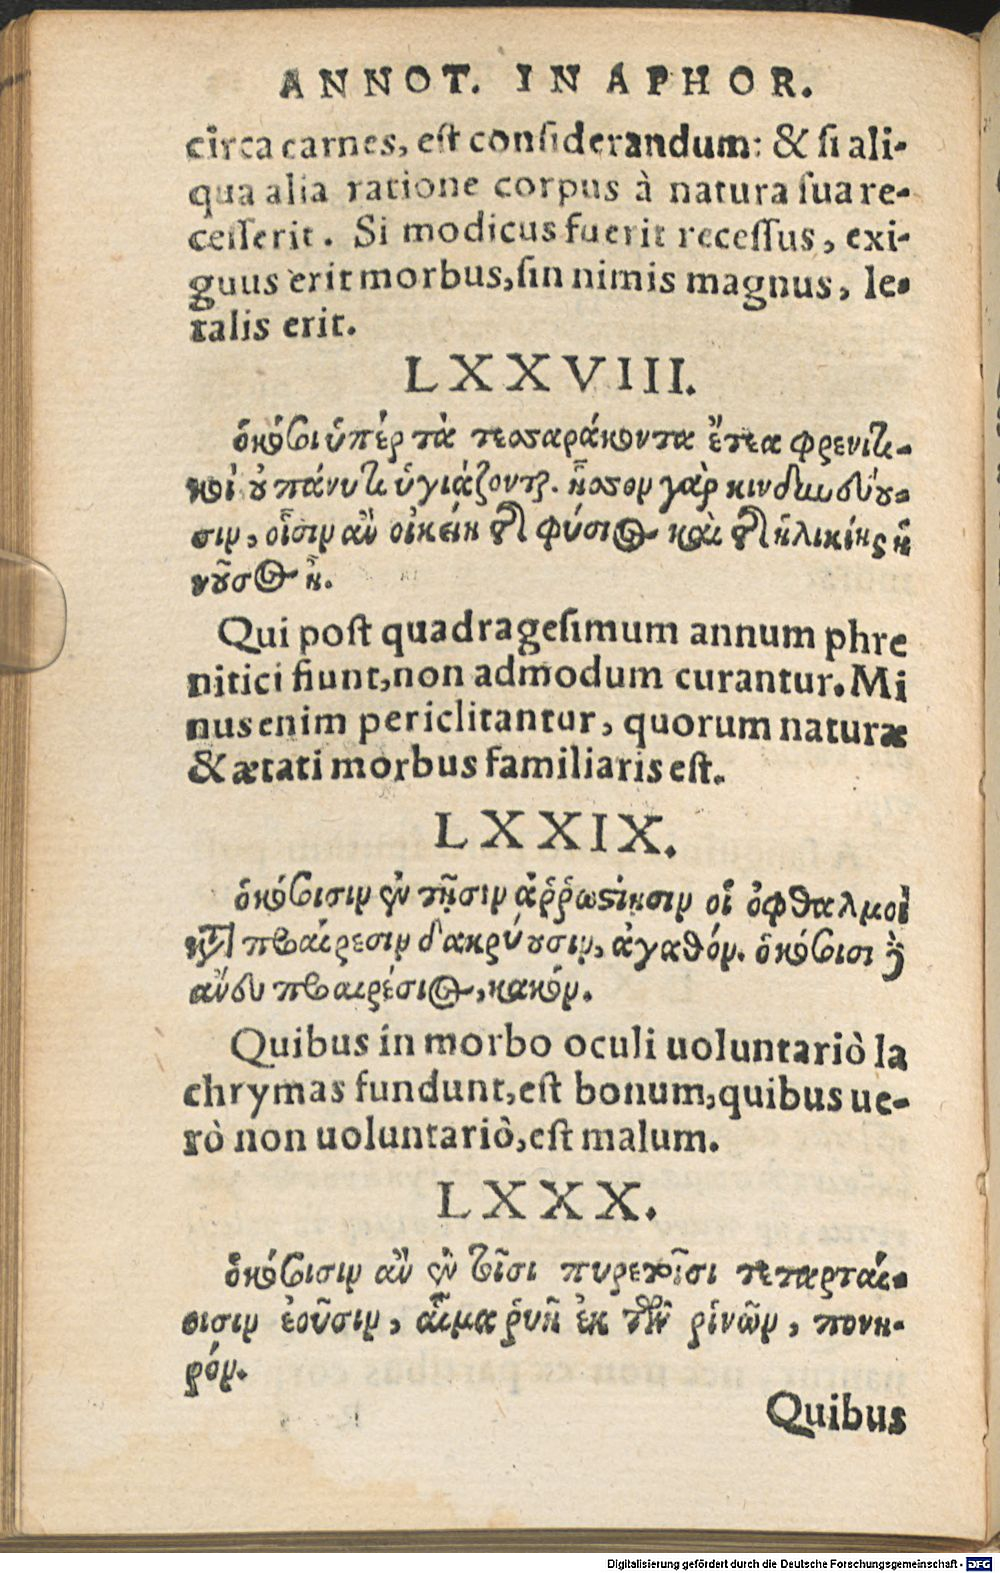 ANNOT. IN APHOR.
circa carnes, est considerandum: & si ali-
qua alia ratione corpus à natura sua re-
cesserit. Si modicus fuerit recessus, exi-
guus erit morbus, sin nimis magnus, le-
talis erit.
LXXVIII.
ὁκόσοι ὑπὲρ τὰ τεσσαράκοντα ἔτεα φρενιτι-
κοὶ οὐ πάνυ τι ὑγιάζονται. ἧσσον γὰρ κινδυνεύου-
σιν, οἷσιν ἂν οἰκείη τῆς φύσιος καὶ τῆς ἡλικίης ἡ
νοῦσος ᾖ.
Qui post quadragesimum annum phre
nitici fiunt, non admodum curantur. Mi
nus enim periclitantur, quorum naturæ
& ætati morbus familiaris est.
LXXIX.
ὁκόσοισιν ἐν τῇσιν ἀῤῥωστίῃσιν οἱ ὀφθαλμοὶ
κατὰ προαίρεσιν δακρύουσιν, ἀγαθόν. ὁκόσοισι δὲ
ἄνευ προαιρέσιος, κακόν.
Quibus in morbo oculi uoluntariò la
chrymas fundunt, est bonum, quibus ue-
rò non uoluntariò, est malum.
LXXX.
ὁκόσοισιν ἂν ἐν τοῖσι πυρετοῖσι τεταρταί-
οισιν ἐοῦσιν, αἷμα ῥυῇ ἐκ τῶν ῥινῶν, πονη-
ρόν.
Quibus
Digitalisierung gefördert durch die Deutsche Forschungsgemeinschaft - DFG